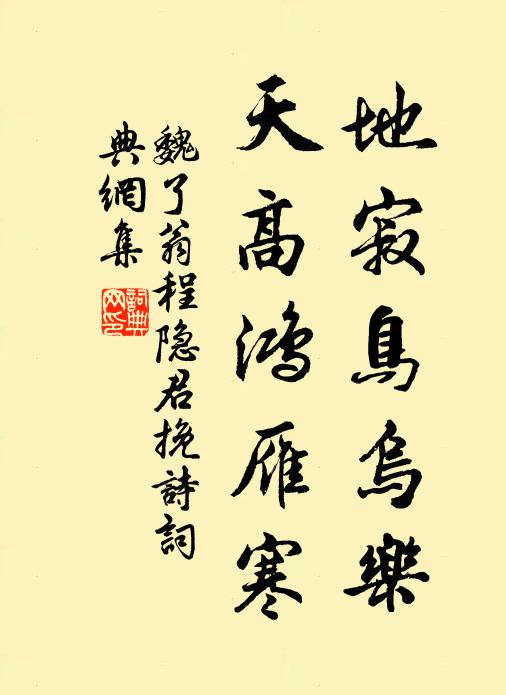 地寂鳥烏樂
天高鸿雁寒
魏了翁程隐君挽詩詞
典網集
詞典
网印